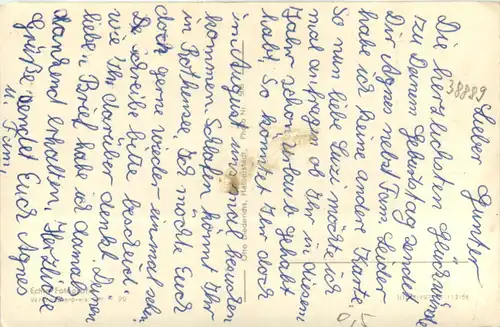 Lieber Günter
Die herzlichsten Glückwünsche
zu Deinem Geburtstag sendet
Dir Agnes nebst Fam. Leider
habe ich keine andere Karte.
So nun liebe möchte ich
mal anfragen ob Ihr in diesem
Jahr schon Urlaub gehabt
habt, So könntet Ihr doch
im August nochmal besuchen
kommen. Sollten könnt Ihr
in Rothensee, Ich möchte Euch
doch gerne wieder einmal sehn.
Du schreibe bitte bescheid,
wie Ihr darüber denkt. Deinen
lieben Brief habe ich damals
dankend erhalten. Herzliche
Grüße sendet Euch Agnes
u. Fam.
38889
Echte Foto
Otto Halberstadt,
0,5